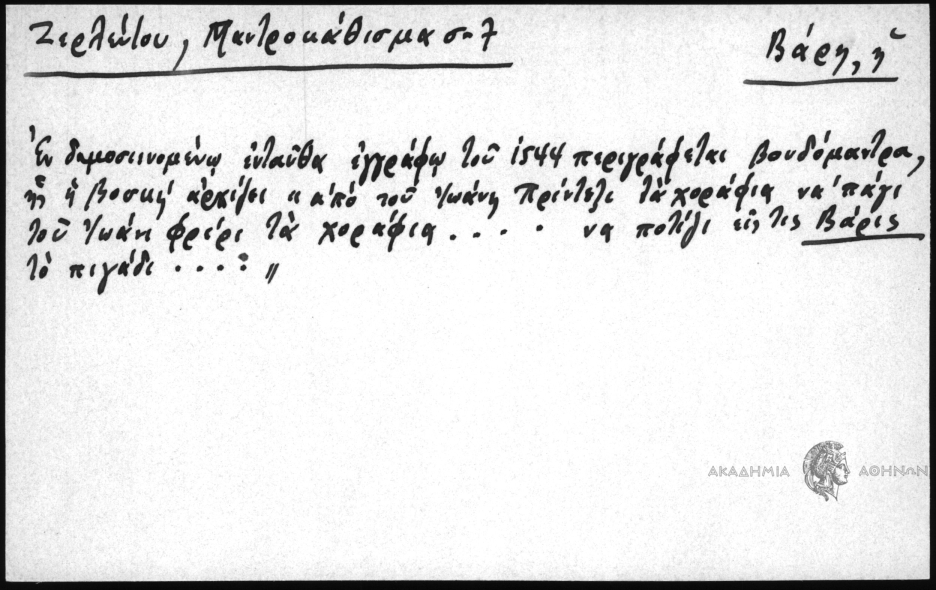 Ζερλέντου, Μαντροκάθισμα σ. 7
Βάρη, ἡ
Ἐν δημοσιευομένῳ ἐνταῦθα ἐγγράφῳ τοῦ 1544 περιγράφεται βουδόμαντρα,
ἧς ἡ βοσκή ἀρχίζει « ἀπό τοῦ Ἰωάνη Πρίντεζι τὰ χοράφια να 'πάγι
τοῦ Ἰωάνι φρέρι τὰ χοράφια . . . . να ποτίζι εἰς τες Βάρις
τὸ πιγάδι . . . . »
ΑΚΑΔΗΜΙΑ ΑΘΗΝΩΝ